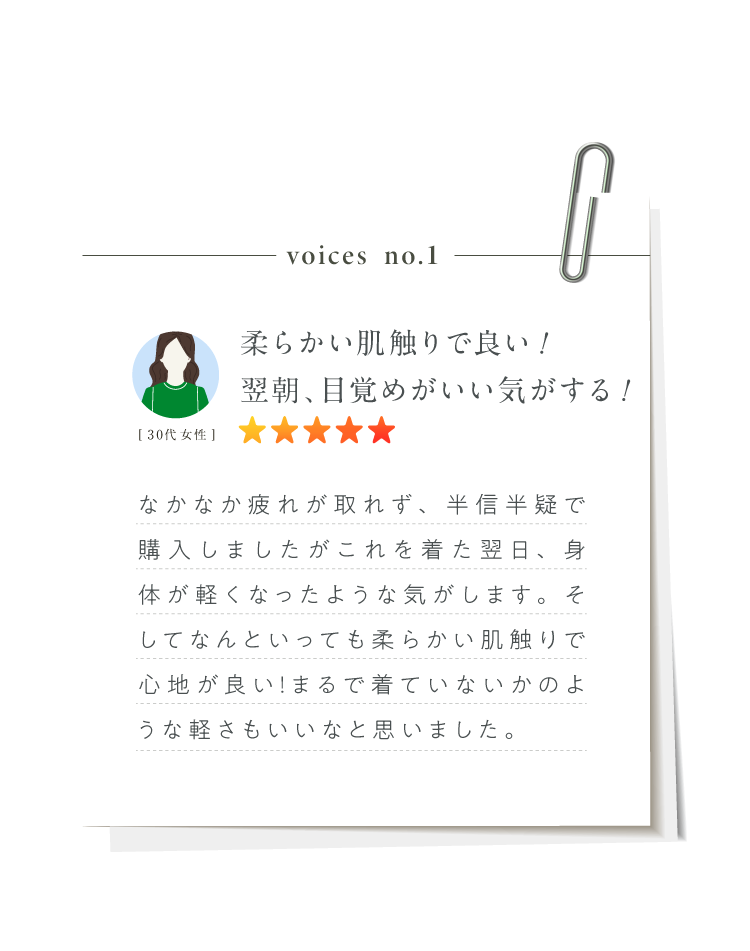 voices no.1
柔らかい肌触りで良い！
翌朝、目覚めがいい気がする！
[ 30代 女性 ]
なかなか疲れが取れず、半信半疑で
購入しましたがこれを着た翌日、身
体が軽くなったような気がします。そ
してなんといっても柔らかい肌触りで
心地が良い!まるで着ていないかのよ
うな軽さもいいなと思いました。